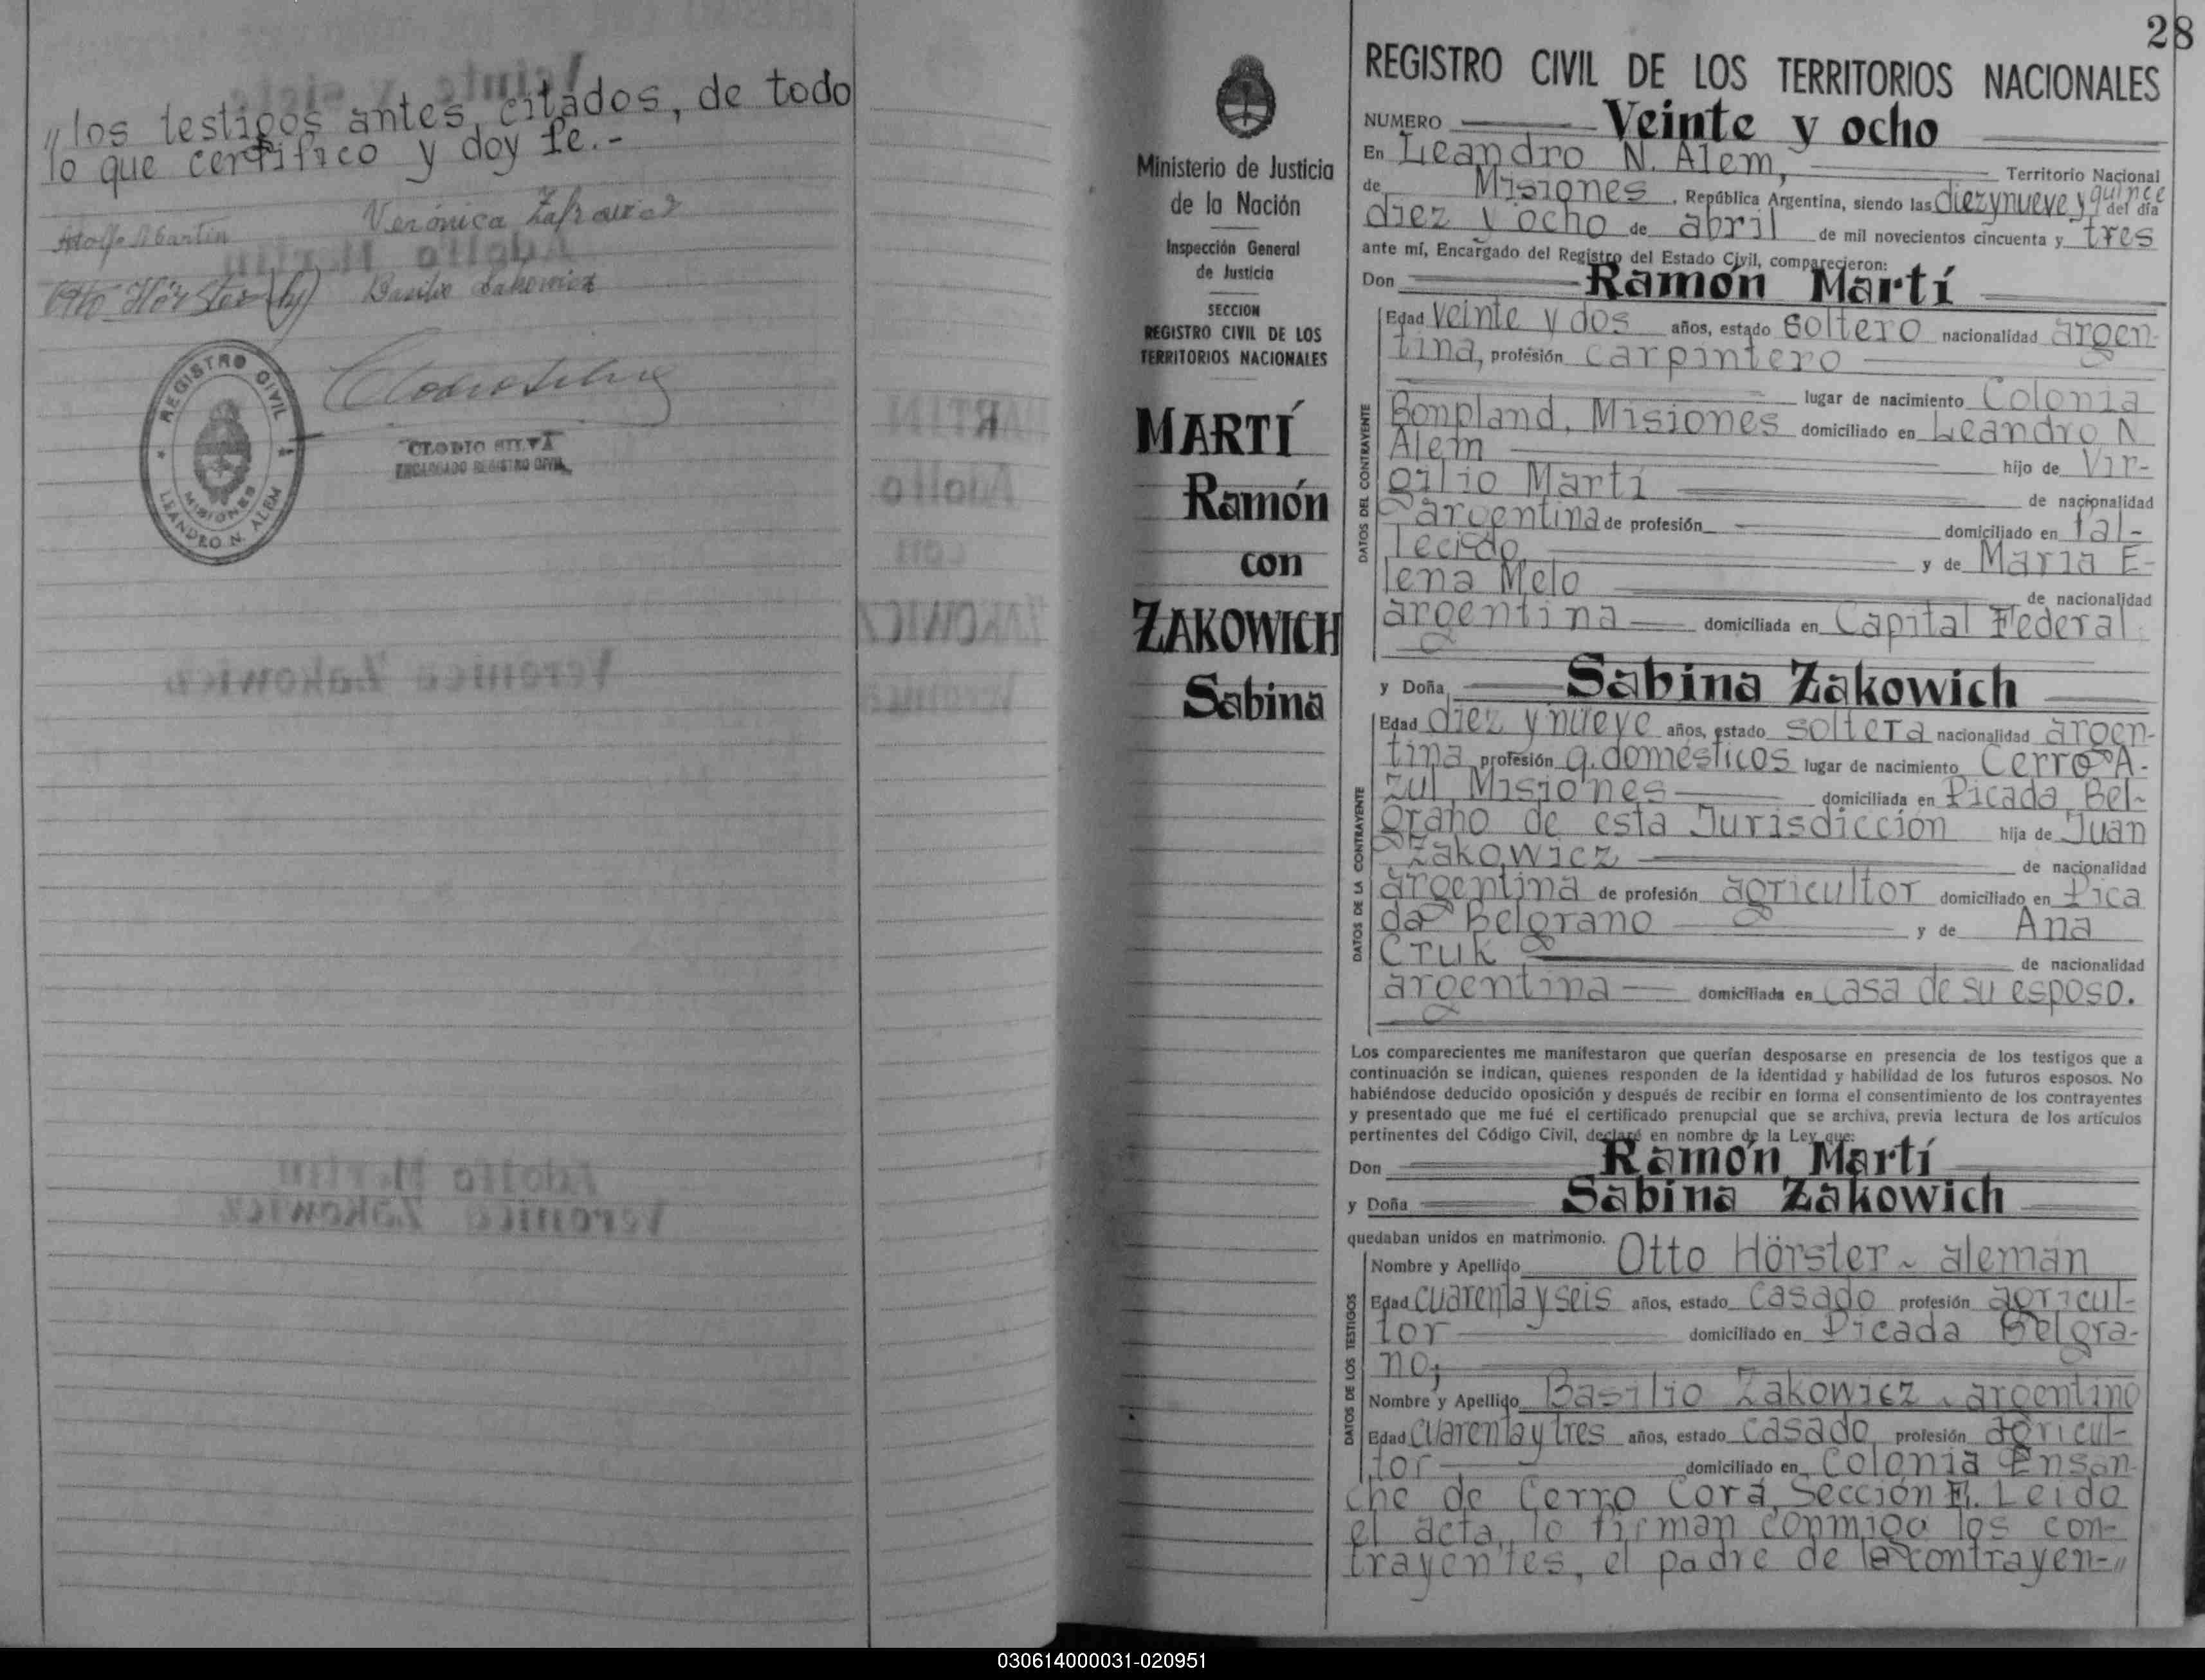 „los testigos antes citados, de todo
lo que certifico y doy fe.-
Adolfo Martin
Verónica Zakowicz
Otto Hörster
Basilio Zakowicz
REGISTRO CIVIL
MISIONES
LEANDRO N. ALEM
CLODIO SILVA
ENCARGADO REGISTRO CIVIL
Ministerio de Justicia
de la Nación
Inspección General
de Justicia
SECCION
REGISTRO CIVIL DE LOS
TERRITORIOS NACIONALES
MARTÍ
Ramón
con
ZAKOWICH
Sabina
28
REGISTRO CIVIL DE LOS TERRITORIOS NACIONALES
NUMERO Veinte y ocho
En Leandro N. Alem, Territorio Nacional
de Misiones, República Argentina, siendo las diezynueve y quince del día
diez y ocho de abril de mil novecientos cincuenta y tres
ante mí, Encargado del Registro del Estado Civil, comparecieron:
Don Ramón Martí
DATOS DEL CONTRAYENTE
Edad veinte y dos años, estado soltero nacionalidad argen-
tina, profesión carpintero
lugar de nacimiento Colonia
Bonpland, Misiones domiciliado en Leandro N
Alem hijo de Vir-
gilio Martí de nacionalidad
argentina de profesión domiciliado en fal-
lecido, y de María E-
lena Melo de nacionalidad
argentina domiciliada en Capital Federal
y Doña Sabina Zakowich
DATOS DE LA CONTRAYENTE
Edad diez y nueve años, estado soltera nacionalidad argen-
tina profesión q. domésticos lugar de nacimiento Cerro A-
zul Misiones domiciliada en Picada Bel-
grano de esta Jurisdicción hija de Juan
Zakowicz de nacionalidad
argentina de profesión agricultor domiciliado en Pica
da Belgrano y de Ana
Cruk de nacionalidad
argentina domiciliada en casa de su esposo.
Los comparecientes me manifestaron que querían desposarse en presencia de los testigos que a
continuación se indican, quienes responden de la identidad y habilidad de los futuros esposos. No
habiéndose deducido oposición y después de recibir en forma el consentimiento de los contrayentes
y presentado que me fué el certificado prenupcial que se archiva, previa lectura de los artículos
pertinentes del Código Civil, declaré en nombre de la Ley que:
Don Ramón Martí
y Doña Sabina Zakowich
quedaban unidos en matrimonio.
DATOS DE LOS TESTIGOS
Nombre y Apellido Otto Hörster ~ aleman
Edad cuarenta y seis años, estado casado profesión agricul-
tor domiciliado en Picada Belgra-
no;
Nombre y Apellido Basilio Zakowicz - argentino
Edad cuarenta y tres años, estado casado profesión agricul-
tor domiciliado en Colonia Ensan-
che de Cerro Corá, Sección Leido
el acta, lo firman conmigo los con-
trayentes, el padre de la contrayen-„
030614000031-020951